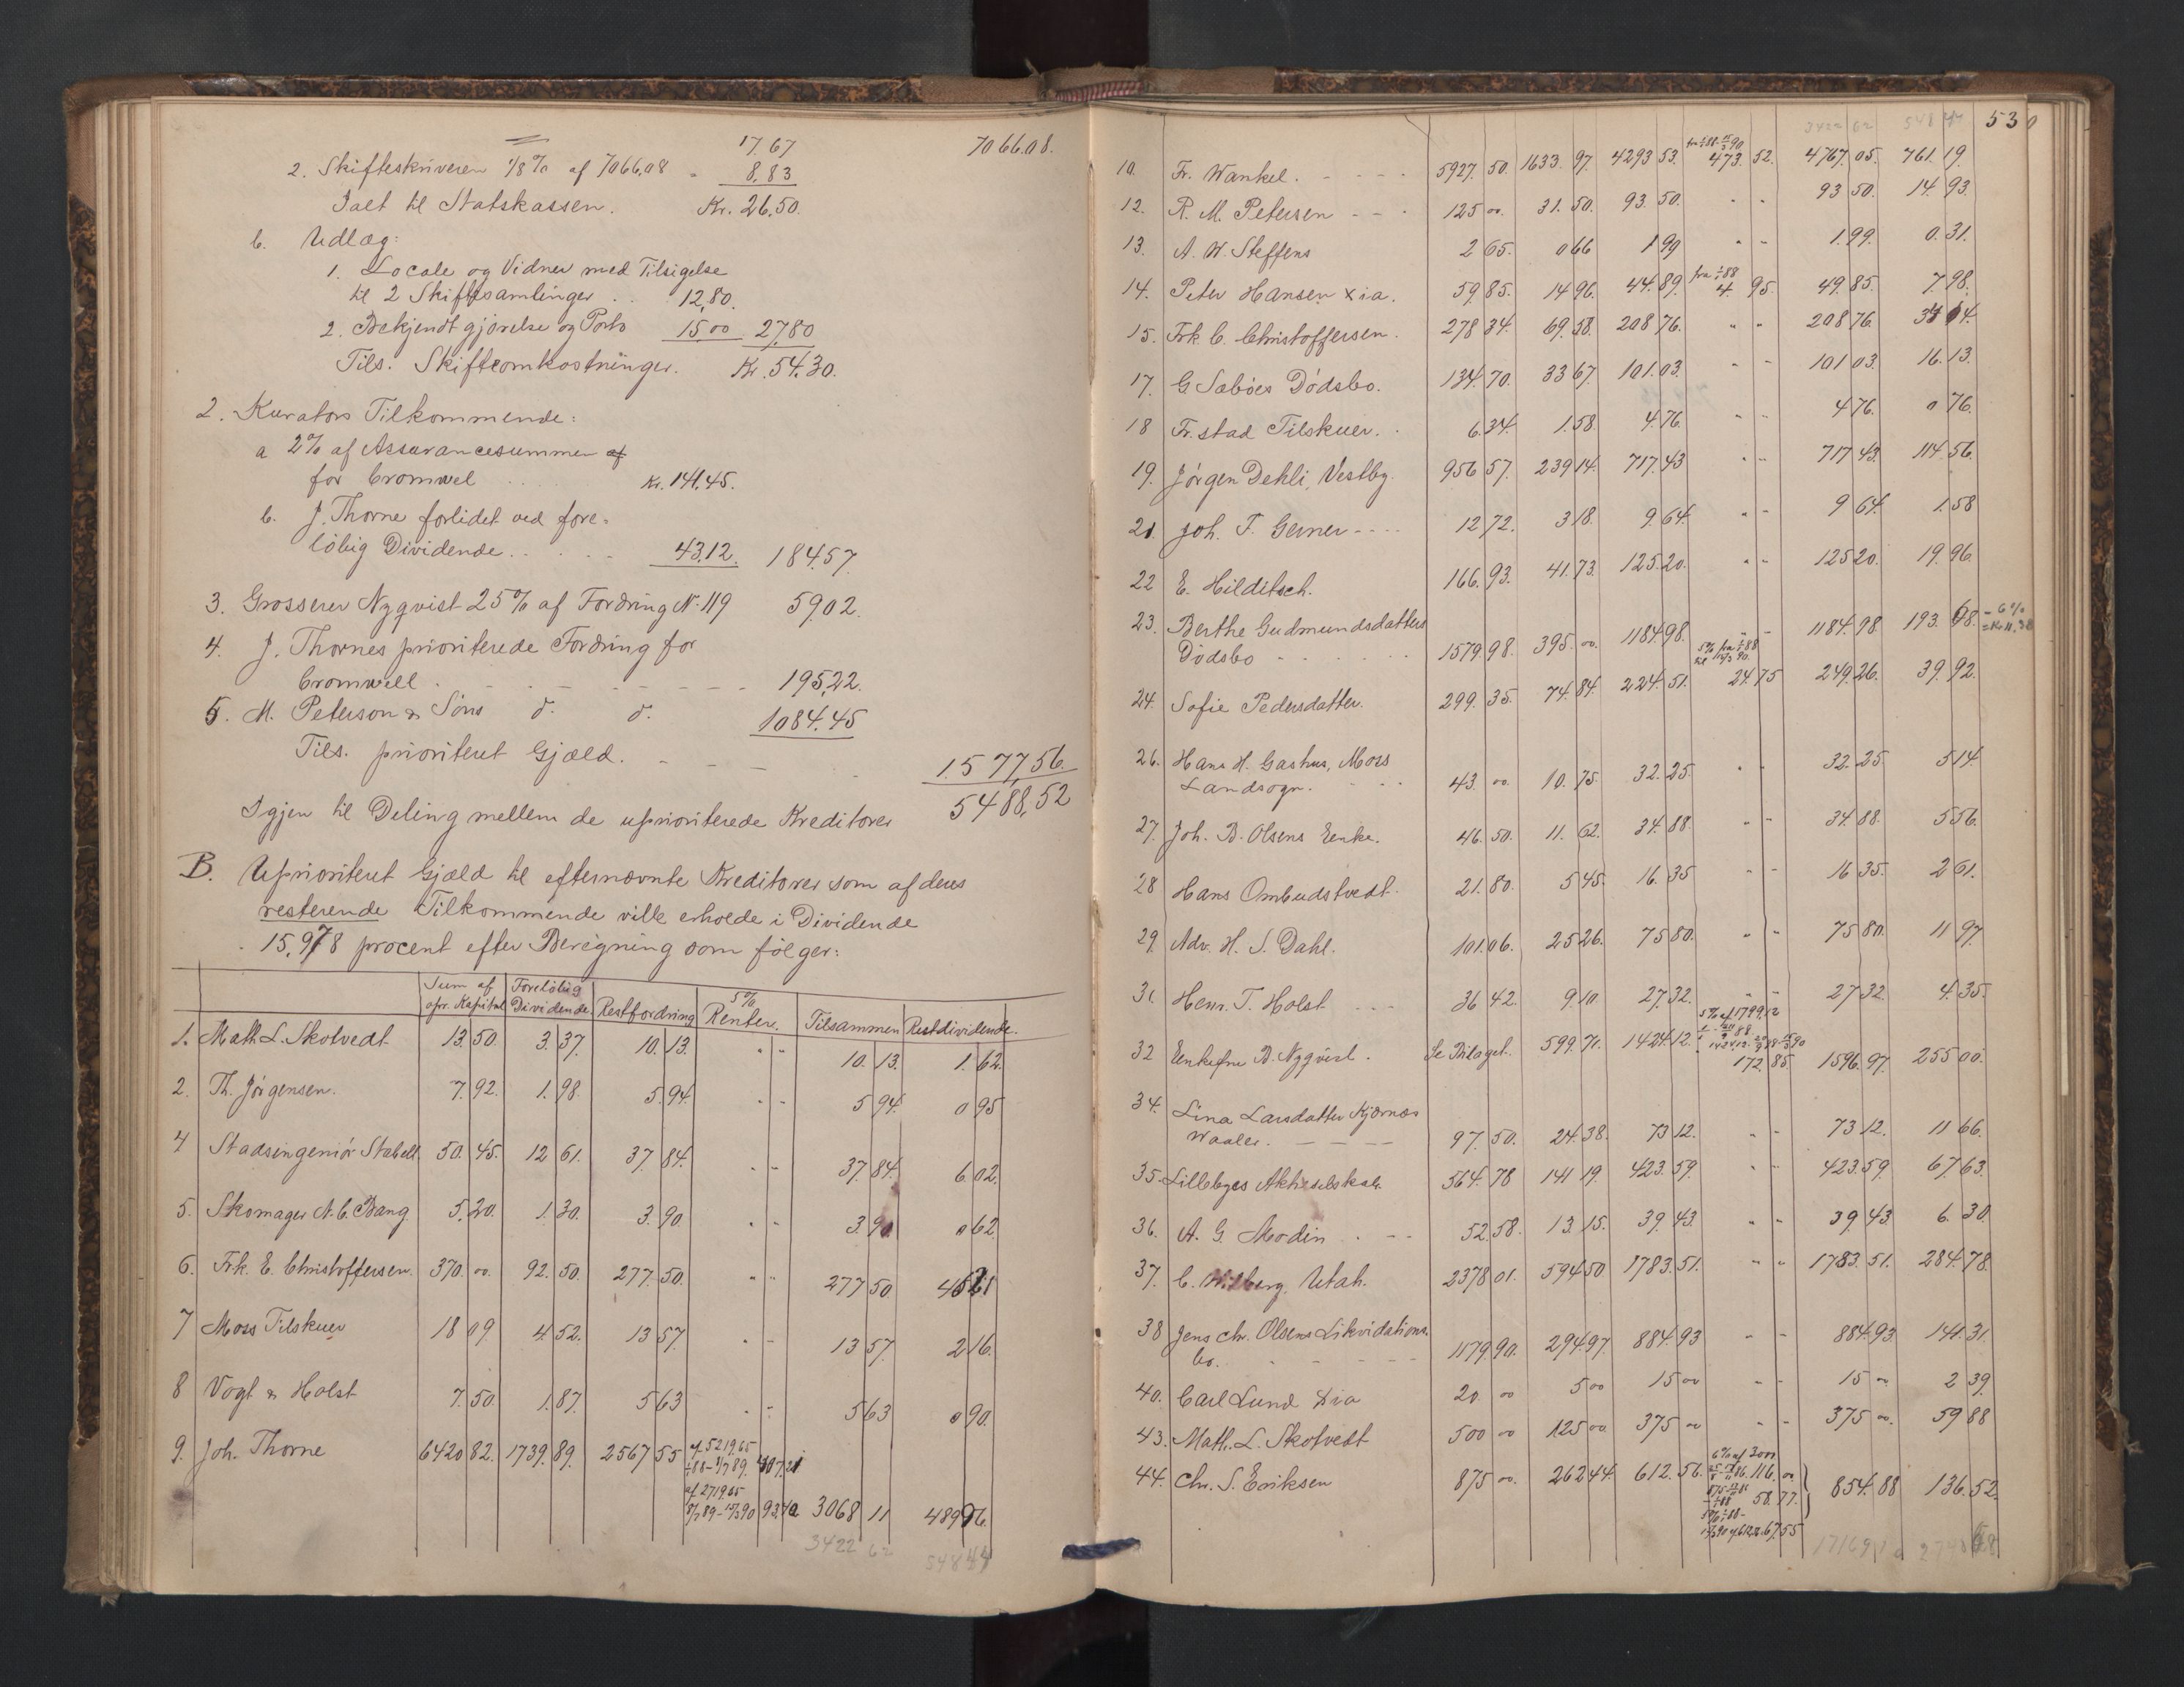 17.67 7066.08.
2. Skifteskriveren 1/8 % af 7066,08 " 8,83
Ialt til Statskassen. Kr. 26,50.
b. Udlæg:
1. Locale og Vidner med Tilsigelse
til 2 Skiftesamlinger . . 12,80.
2. Bekjendtgjørelse og Porto 15,00 27,80
Tils. Skifteomkostninger. Kr. 54.30.
2. Kurators Tilkommende:
a 2% af Assurancesummen af
for Cromwel . . . . Kr. 141.45.
b. J. Thorne forlidet ved fore=
løbig Dividende . . . . . 43.12. 184.57.
3. Grosserer Nyqvist 25% af Fordring No 119 59,02.
4. J. Thornes prioriterede Fordring for
Cromwell . - - - - - - - 195,22.
5. M. Peterson & Søns do. do. 1084.45
Tils. prioriteret Gjæld. - - - - 1577,56.
5488,52
Igjen til Deling mellem de uprioriterede Kreditorer
B. Uprioriteret Gjæld til efternævnte Kreditorer som af deres
resterende Tilkommende ville erholde i Dividende
15,978 procent efter Beregning som følger:
Sum af opr. Kapital Foreløbig Dividende. Restfordring 5% Renter. Tilsammen Restdividende.
1. Math. L. Skotvedt 13.50. 3.37. 10.13. " " 10.13. 1.62.
2. Th. Jørgensen. 7.92. 1.98. 5.94. " " 5 94. 0 95
4 Stadsingeniør Stabell. 50.45. 12 61. 37 84. " " 37.84. 6.02.
5. Skomager N. C. Bang. 5.20. 1.30. 3.90. " " 3.90. 0 62
6. Frk. E. Christoffersen. 370.00. 92.50. 277.50. " " 277 50
7 Moss Tilskuer 18 09 4.52. 13 57. " " 13 57. 2 16.
8 Vogt & Holst 7.50. 1.87. 5 63 " " 5 63 0 90.
9. Joh. Thorne 6420 82. 1739.89. 2567 55 af 5219.65
af 2719.65
93.40 3068 11
3422 62
530
10. Fr. Wankel. - - - - 5927.50. 1633.97. 4293 53. 473.52. 4767.05. 761.19.
12. R. M. Petersen - - - 125 00. 31.50. 93.50. " " 93 50. 14.93.
13. A. W. Steffens 2 65. 0 66 1 99 " " 1.99. 0.31.
14. Peter Hansen & Cia. 59.85. 14 96. 44.89. 4. 95. 49.85. 7 98.
15. Frk. C. Christoffersen. 278 34. 69.58. 208 76. " " 208 76.
17. G Sæbøes Dødsbo. 134.70. 33 67. 101.03. " " 101 03. 16.13.
18 Fr.stad Tilskuer. . 6.34. 1.58. 4.76. " " 4 76. 0 76.
19. Jørgen Dehli, Vestby. 956 57. 239 14. 717.43 " " 717 43. 114 56.
20. Joh. T. Gerner - - - - 12 72. 3 18. 9.64. " " 9 64. 1.58
22 E. Hilditsch. 166.93. 41.73. 125.20. " " 125 20. 19.96.
23. Berthe Gudmundsdatters
Dødsbo - - - - - - 1579.98. 395.00. 1184 98. - - 1184.98. 193. 68.
24. Sofie Pedersdatter. 299.35. 74.84. 224.51. 24.75 249.26. 39.92.
26. Hans H. Gashus, Moss
Landsogn. - - - 43.00. 10.75. 32.25. " " 32.25. 5 14.
27. Joh. B. Olsens Enke. 46.50. 11.62. 34.88. " " 34.88. 5 56.
28 Hans Ombudstvedt. 21.80. 5 45. 16.35 " " 16 35. 2 61.
29. Adv. H. S. Dahl. 101.06. 25 26. 75 80. " " 75 80. 11 97.
31. Henr. T. Holst - - - 36 42. 9.10 27.32. " " 27 32. 4.35.
32 Enkefru B. Nyqvist. Se Bilaget. 599.71. 1424.12. 172.85. 1596.97. 255 00.
34. Lina Larsdatter Kjærnes
Waaler. - - - - 97.50. 24.38. 73 12. " " 73 12. 11 66.
35. Lillebyes Aktieselskab. 564.78 141 19. 423.59. " " 423.59. 67.63.
36. A. G. Modin - - - 52.58. 13.15. 39.43. " " 39.43. 6.30.
37. C. Wilberg, Utah. 2378 01. 594 50 1783.51. " " 1783.51. 284.78.
38 Jens Chr. Olsens Likvidations
bo. - - - - - 1179.90. 294.97. 884.93 - - 884.93. 141.31.
40. Carl Lund & Cia 20 00 5 00 15 00 - - 15 00 2 39.
43. Math. L. Skotvedt 500 00 125 00. 375 00 - - 375 00. 59 88
44. Chr. S. Eriksen 875 00. 262 44. 612.56. 6% af 3000 116.00. 58.77. 67.55 854.88 136.52.